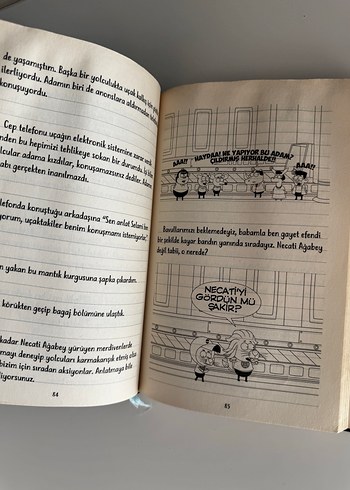 de yaşamıştım. Başka bir yolculukta uçak kalkış için
ilerliyordu. Adamın biri de anonslara aldırmadan
konuşuyordu.
Cep telefonu uçağın elektronik sistemine zarar
nden bu hepimizi tehlikeye sokan bir durum. İyi
lcular adama kızdılar, konuşamazsınız dediler. Adamın
abı gerçekten inanılmazdı.
lefonda konuştuğu arkadaşına "Sen anlat Selami
yorum, uçaktakiler benim konuşmamı istemiyorlar."
n yakan bu mantık kurgusuna şapka çıkardım.
körükten geçip bagaj bölümüne ulaştık.
kadar Necati Ağabey yürüyen merdivenlerde
mayı deneyip yolcuları karmakarışık etmiş olsa
bizim için sıradan aksiyonlar. Anlatmaya bile
liyorsunuz.
84
AAA!!
HAYDAA! NE YAPIYOR BU ADAM?
ÇILDIRMIŞ HERHALDE!!
AAA!!
Bavullarımızı beklemedeyiz, babamla ben gayet efendi
bir şekilde kayar bandın yanında sıradayız. Necati Ağabey
değil tabii, o nerede?
NECATİ'Yİ
GÖRDÜN MÜ
ŞAKİR?
85